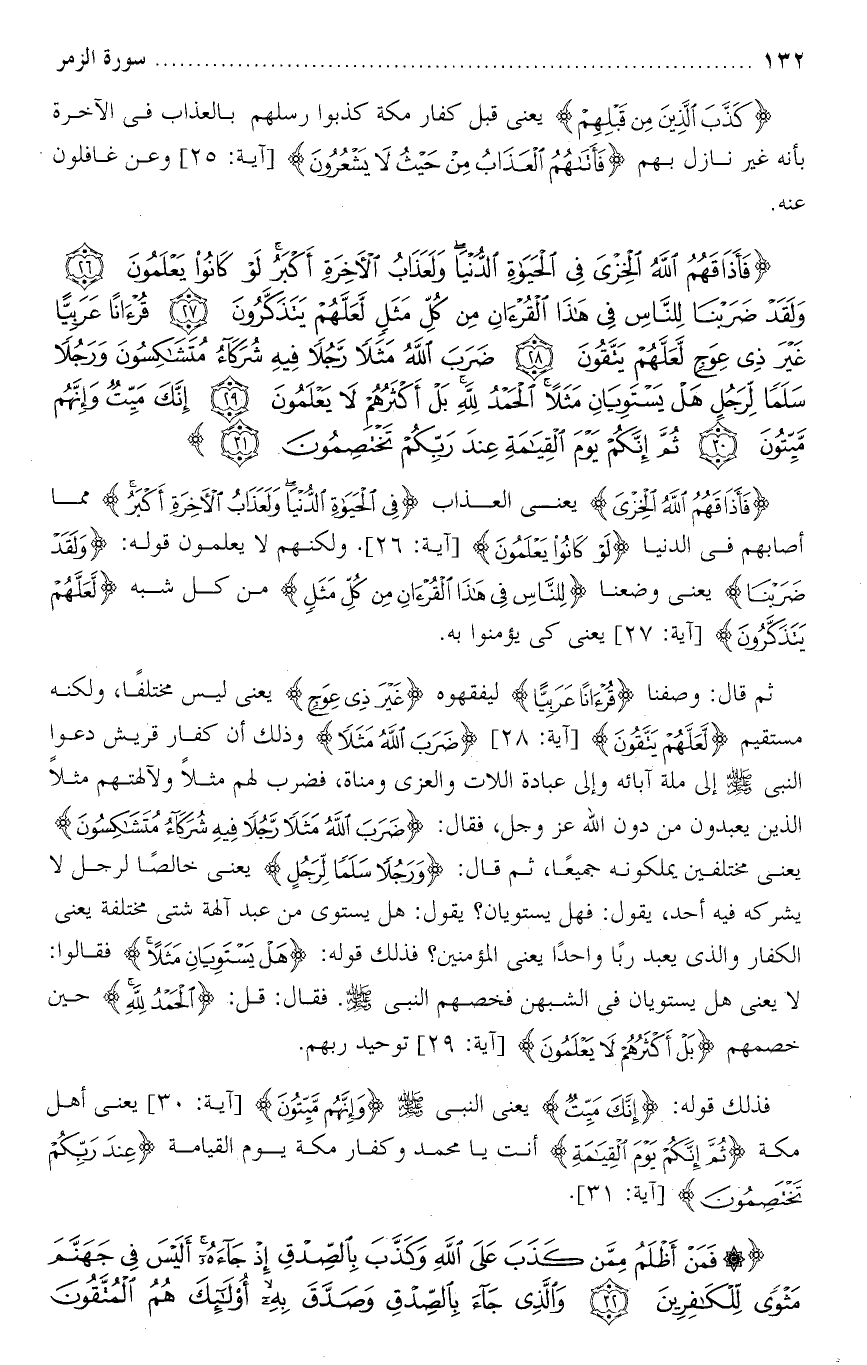 ١٣٢ ........................................................................ سورة الزمر
﴿كَذَّبَ الَّذِينَ مِن قَبْلِهِمْ﴾ يعنى قبل كفار مكة كذبوا رسلهم بالعذاب فى الآخرة
بأنه غير نازل بهم ﴿فَأَتَىٰهُمُ ٱلْعَذَابُ مِنْ حَيْثُ لَا يَشْعُرُونَ﴾ [آية: ٢٥] وعن غافلون
عنه.
﴿فَأَذَاقَهُمُ ٱللَّهُ ٱلْخِزْىَ فِى ٱلْحَيَوٰةِ ٱلدُّنْيَا ۖ وَلَعَذَابُ ٱلْأَخِرَةِ أَكْبَرُ ۚ لَوْ كَانُوا۟ يَعْلَمُونَ ٢٦
وَلَقَدْ ضَرَبْنَا لِلنَّاسِ فِى هَٰذَا ٱلْقُرْءَانِ مِن كُلِّ مَثَلٍ لَّعَلَّهُمْ يَتَذَكَّرُونَ ٢٧ قُرْءَانًا عَرَبِيًّا
غَيْرَ ذِى عِوَجٍ لَّعَلَّهُمْ يَتَّقُونَ ٢٨ ضَرَبَ ٱللَّهُ مَثَلًا رَّجُلًا فِيهِ شُرَكَآءُ مُتَشَٰكِسُونَ وَرَجُلًا
سَلَمًا لِّرَجُلٍ هَلْ يَسْتَوِيَانِ مَثَلًا ۚ ٱلْحَمْدُ لِلَّهِ ۚ بَلْ أَكْثَرُهُمْ لَا يَعْلَمُونَ ٢٩ إِنَّكَ مَيِّتٌ وَإِنَّهُم
مَّيِّتُونَ ٣٠ ثُمَّ إِنَّكُمْ يَوْمَ ٱلْقِيَٰمَةِ عِندَ رَبِّكُمْ تَخْتَصِمُونَ ٣١ ﴾
﴿فَأَذَاقَهُمُ ٱللَّهُ ٱلْخِزْىَ﴾ يعنى العذاب ﴿فِى ٱلْحَيَوٰةِ ٱلدُّنْيَا ۖ وَلَعَذَابُ ٱلْأَخِرَةِ أَكْبَرُ ۚ﴾ مما
أصابهم فى الدنيا ﴿لَوْ كَانُوا۟ يَعْلَمُونَ﴾ [آية: ٢٦]. ولكنهم لا يعلمون قوله: ﴿وَلَقَدْ
ضَرَبْنَا﴾ يعنى وضعنا ﴿لِلنَّاسِ فِى هَٰذَا ٱلْقُرْءَانِ مِن كُلِّ مَثَلٍ﴾ من كل شبه ﴿لَّعَلَّهُمْ
يَتَذَكَّرُونَ﴾ [آية: ٢٧] يعنى كى يؤمنوا به.
ثم قال: وصفنا ﴿قُرْءَانًا عَرَبِيًّا﴾ ليفقهوه ﴿غَيْرَ ذِى عِوَجٍ﴾ يعنى ليس مختلفًا، ولكنه
مستقيم ﴿لَّعَلَّهُمْ يَتَّقُونَ﴾ [آية: ٢٨] ﴿ضَرَبَ ٱللَّهُ مَثَلًا﴾ وذلك أن كفار قريش دعوا
النبى ﷺ إلى ملة آبائه وإلى عبادة اللات والعزى ومناة، فضرب لهم مثلاً ولآلهتهم مثلاً
الذين يعبدون من دون الله عز وجل، فقال: ﴿ضَرَبَ ٱللَّهُ مَثَلًا رَّجُلًا فِيهِ شُرَكَآءُ مُتَشَٰكِسُونَ﴾
يعنى مختلفين يملكونه جميعًا، ثم قال: ﴿وَرَجُلًا سَلَمًا لِّرَجُلٍ﴾ يعنى خالصًا لرجل لا
يشركه فيه أحد، يقول: فهل يستويان؟ يقول: هل يستوى من عبد آلهة شتى مختلفة يعنى
الكفار والذى يعبد ربًا واحدًا يعنى المؤمنين؟ فذلك قوله: ﴿هَلْ يَسْتَوِيَانِ مَثَلًا ۚ﴾ فقالوا:
لا يعنى هل يستويان فى الشبهن فخصهم النبى ﷺ. فقال: قل: ﴿ٱلْحَمْدُ لِلَّهِ ۚ﴾ حين
خصمهم ﴿بَلْ أَكْثَرُهُمْ لَا يَعْلَمُونَ﴾ [آية: ٢٩] توحيد ربهم.
فذلك قوله: ﴿إِنَّكَ مَيِّتٌ﴾ يعنى النبى ﷺ ﴿وَإِنَّهُم مَّيِّتُونَ﴾ [آية: ٣٠] يعنى أهل
مكة ﴿ثُمَّ إِنَّكُمْ يَوْمَ ٱلْقِيَٰمَةِ﴾ أنت يا محمد وكفار مكة يوم القيامة ﴿عِندَ رَبِّكُمْ
تَخْتَصِمُونَ﴾ [آية: ٣١].
﴿۞ فَمَنْ أَظْلَمُ مِمَّن كَذَبَ عَلَى ٱللَّهِ وَكَذَّبَ بِٱلصِّدْقِ إِذْ جَآءَهُۥٓ ۚ أَلَيْسَ فِى جَهَنَّمَ
مَثْوًى لِّلْكَٰفِرِينَ ٣٢ وَٱلَّذِى جَآءَ بِٱلصِّدْقِ وَصَدَّقَ بِهِۦٓ ۙ أُو۟لَٰٓئِكَ هُمُ ٱلْمُتَّقُونَ